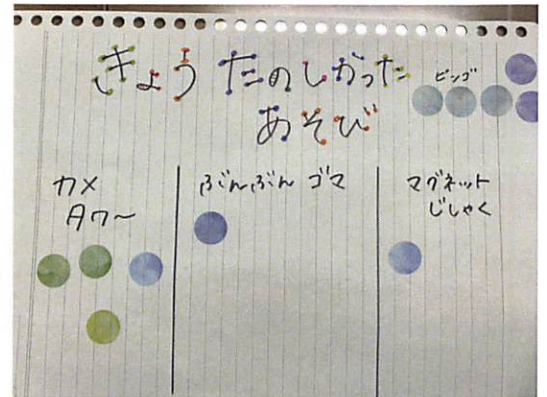 きょう たのしかった
あそび
ビンゴ
カメ
タワ〜
ぶんぶん ゴマ
マグネット
じしゃく